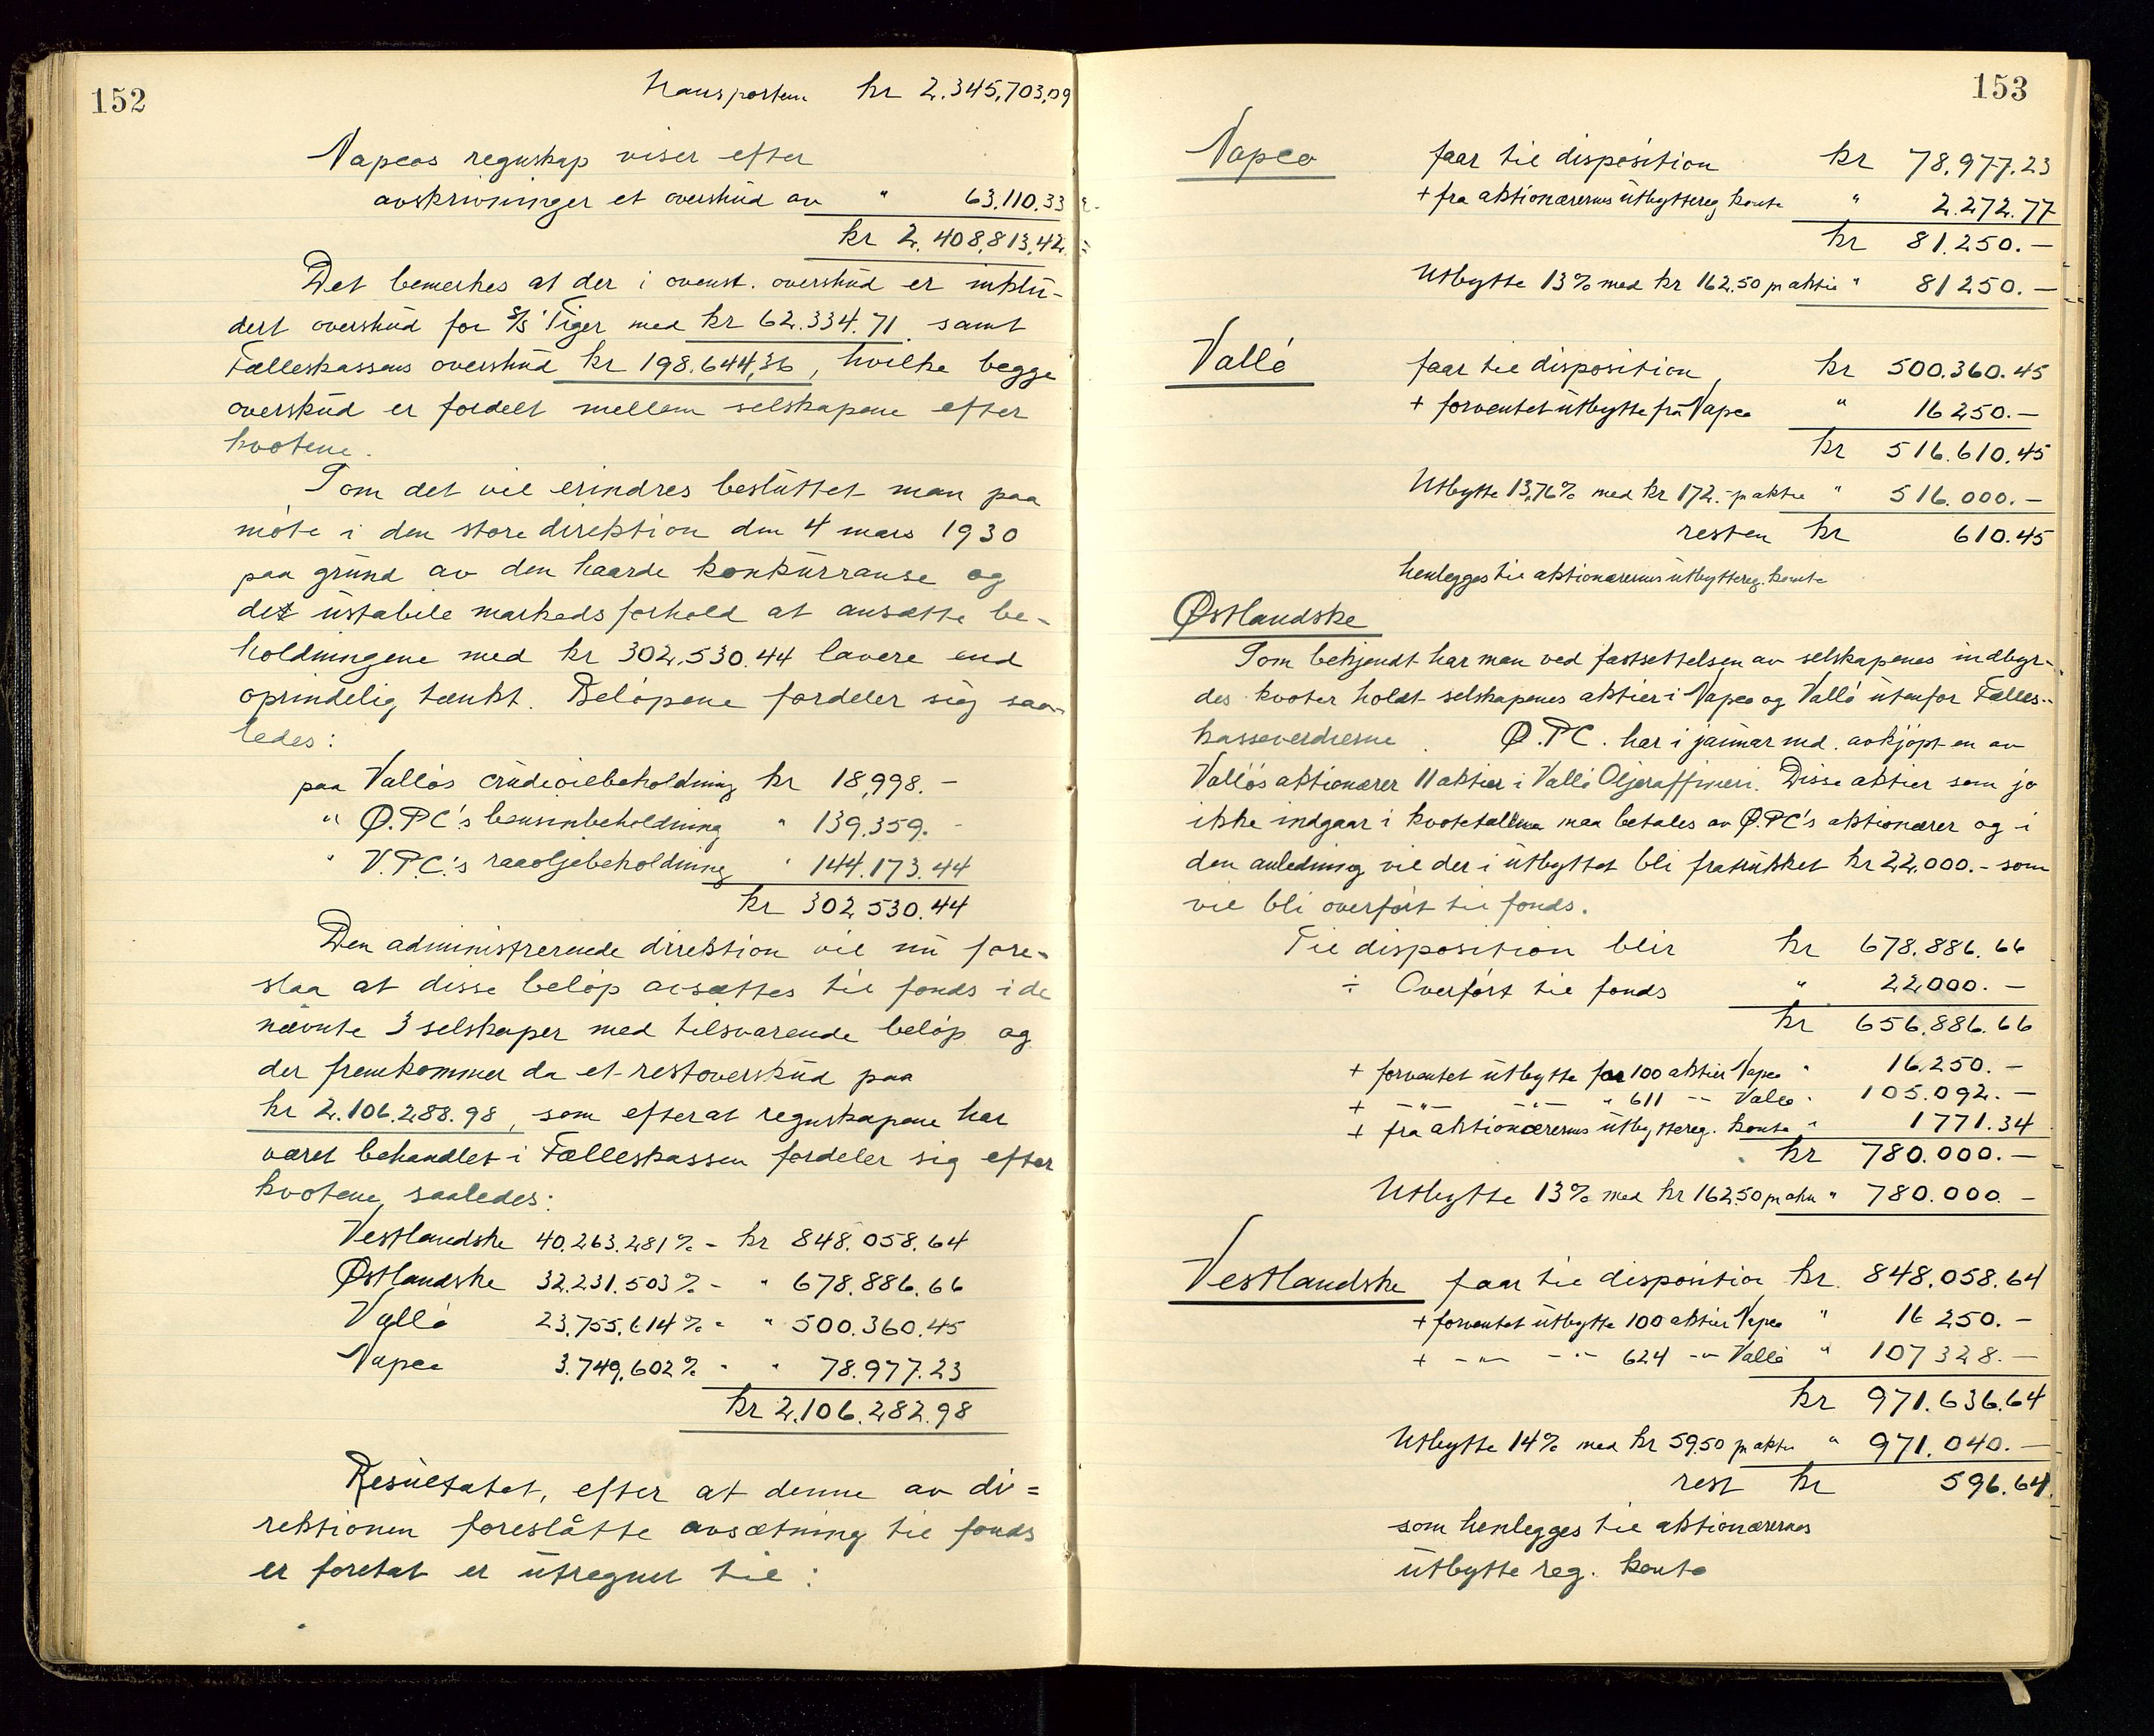 152
transporten kr 2.345,703,09
Napcos regnskap viser efter
avskrivninger et overskud av " 63.110.33
kr 2.408.813,42
Det bemerkes at der i ovenst. overskud er inklu-
dert overskud for S/S Tiger med kr 62.334.71 samt
Fælleskassens overskud kr 198.644,36, hvilke begge
overskud er fordelt mellem selskapene efter
kvotene.
Som det vil erindres besluttet man paa
møte i den store direktion den 4 mars 1930
paa grund av den haarde konkurranse og
det ustabile markedsforhold at ansætte be-
holdningene med kr 302.530.44 lavere end
oprindelig tænkt. Beløpene fordeler sig saa-
ledes:
paa Valløs crudeoilbeholdning kr 18,998.-
" Ø.P.C's bensinbeholdning " 139,359.-
" V.P.C.'s raaoljebeholdning " 144.173.44
kr 302.530.44
Den administrerende direktion vil nu fore-
slaa at disse beløp avsættes til fonds i de
nævnte 3 selskaper med tilsvarende beløp og
der fremkommer da et restoverskud paa
kr 2.106.288.98, som efterat regnskapene har
været behandlet i Fælleskassen fordeler sig efter
kvotene saaledes:
Vestlandske 40.263.281% - kr 848.058.64
Østlandske 32.231.503% - " 678.886.66
Vallø 23.755.614% - " 500.360.45
Napco 3.749,602% - " 78.977.23
kr 2.106.282.98
Resultatet, efter at denne av di=
rektionen foreslåtte avsætning til fonds
er foretat er utregnet til:
153
Napco faar til disposition kr 78.977.23
+ fra aktionærernes utbyttereg. konto " 2.272.77
kr 81.250.-
Utbytte 13% med kr 162.50 pr aktie " 81250.-
Vallø faar til disposition kr 500.360.45
+ forventet utbytte fra Napco " 16250.-
kr 516.610.45
Utbytte 13,76% med kr 172.- pr aktie " 516.000.-
resten kr 610.45
henlegges til aktionærernes utbyttereg. konto
Østlandske
Som bekjendt har man ved fastsettelsen av selskapenes indbyr-
des kvoter holdt selskapenes aktier i Napco og Vallø utenfor Fælles-
kasseverdierne. Ø.P.C. har i januar md. avkjøpt en av
Valløs aktionærer 11 aktier i Vallø Oljeraffineri. Disse aktier som jo
ikke indgaar i kvotetallene maa betales av Ø.P.C's aktionærer og i
den anledning vil der i utbyttet bli fratrukket kr 22.000.- som
vil bli overført til fonds.
Til disposition blir kr 678.886.66
÷ Overført til fonds " 22000.-
kr 656.886.66
+ forventet utbytte for 100 aktier Napco " 16.250.-
+ -"- -"- " 611 -"- Vallø " 105.092.-
+ fra aktionærernes utbyttereg. konto " 1771.34
kr 780.000.-
Utbytte 13% med kr 162.50 pr aktie " 780.000.-
Vestlandske faar til disposition kr. 848.058.64
+ forventet utbytte 100 aktier Napco " 16250.-
+ -"- -"- 624 -"- Vallø " 107328.-
kr 971.636.64
Utbytte 14% med kr 59.50 pr aktie " 971.040.-
rest kr 596.64
som henlegges til aktionærernes
utbytte reg. konto